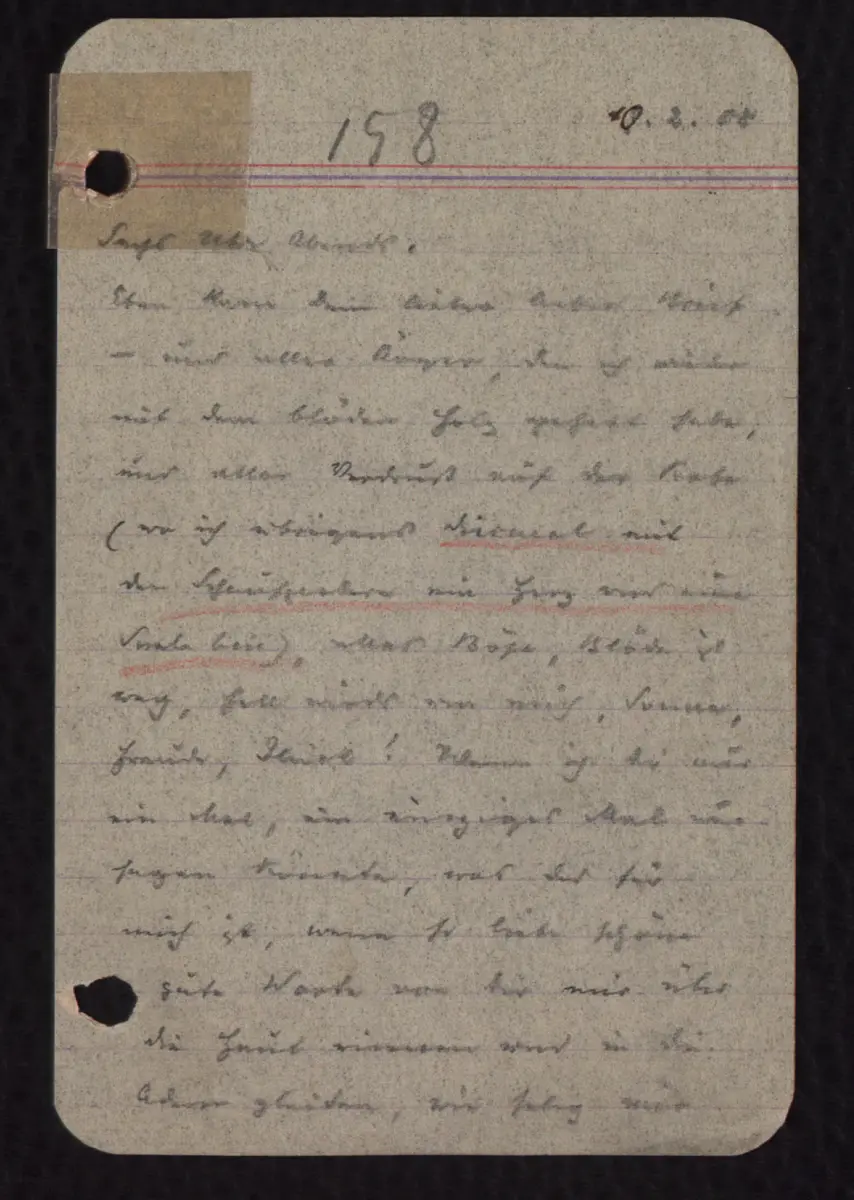 158
10.2.08
Sechs Uhr Abends.
Eben kam Dein lieber lieber Brief
– und aller Ärger, den ich wieder
mit dem blöden Holz gehabt habe,
und aller Verdruß auf der Probe
(wo ich übrigens diesmal mit
den Schauspielern ein Herz und eine
Seele bin), alles Böse, Blöde ist
weg, hell wirds um mich, Sonne,
Freude, Glück! Wenn ich Dir nur
ein Mal, ein einziges Mal nur
sagen könnte, was das für
mich ist, wenn so liebe schöne
gute Worte von Dir mir über
die Haut rinnen und in die
Adern gleiten, wie selig mir